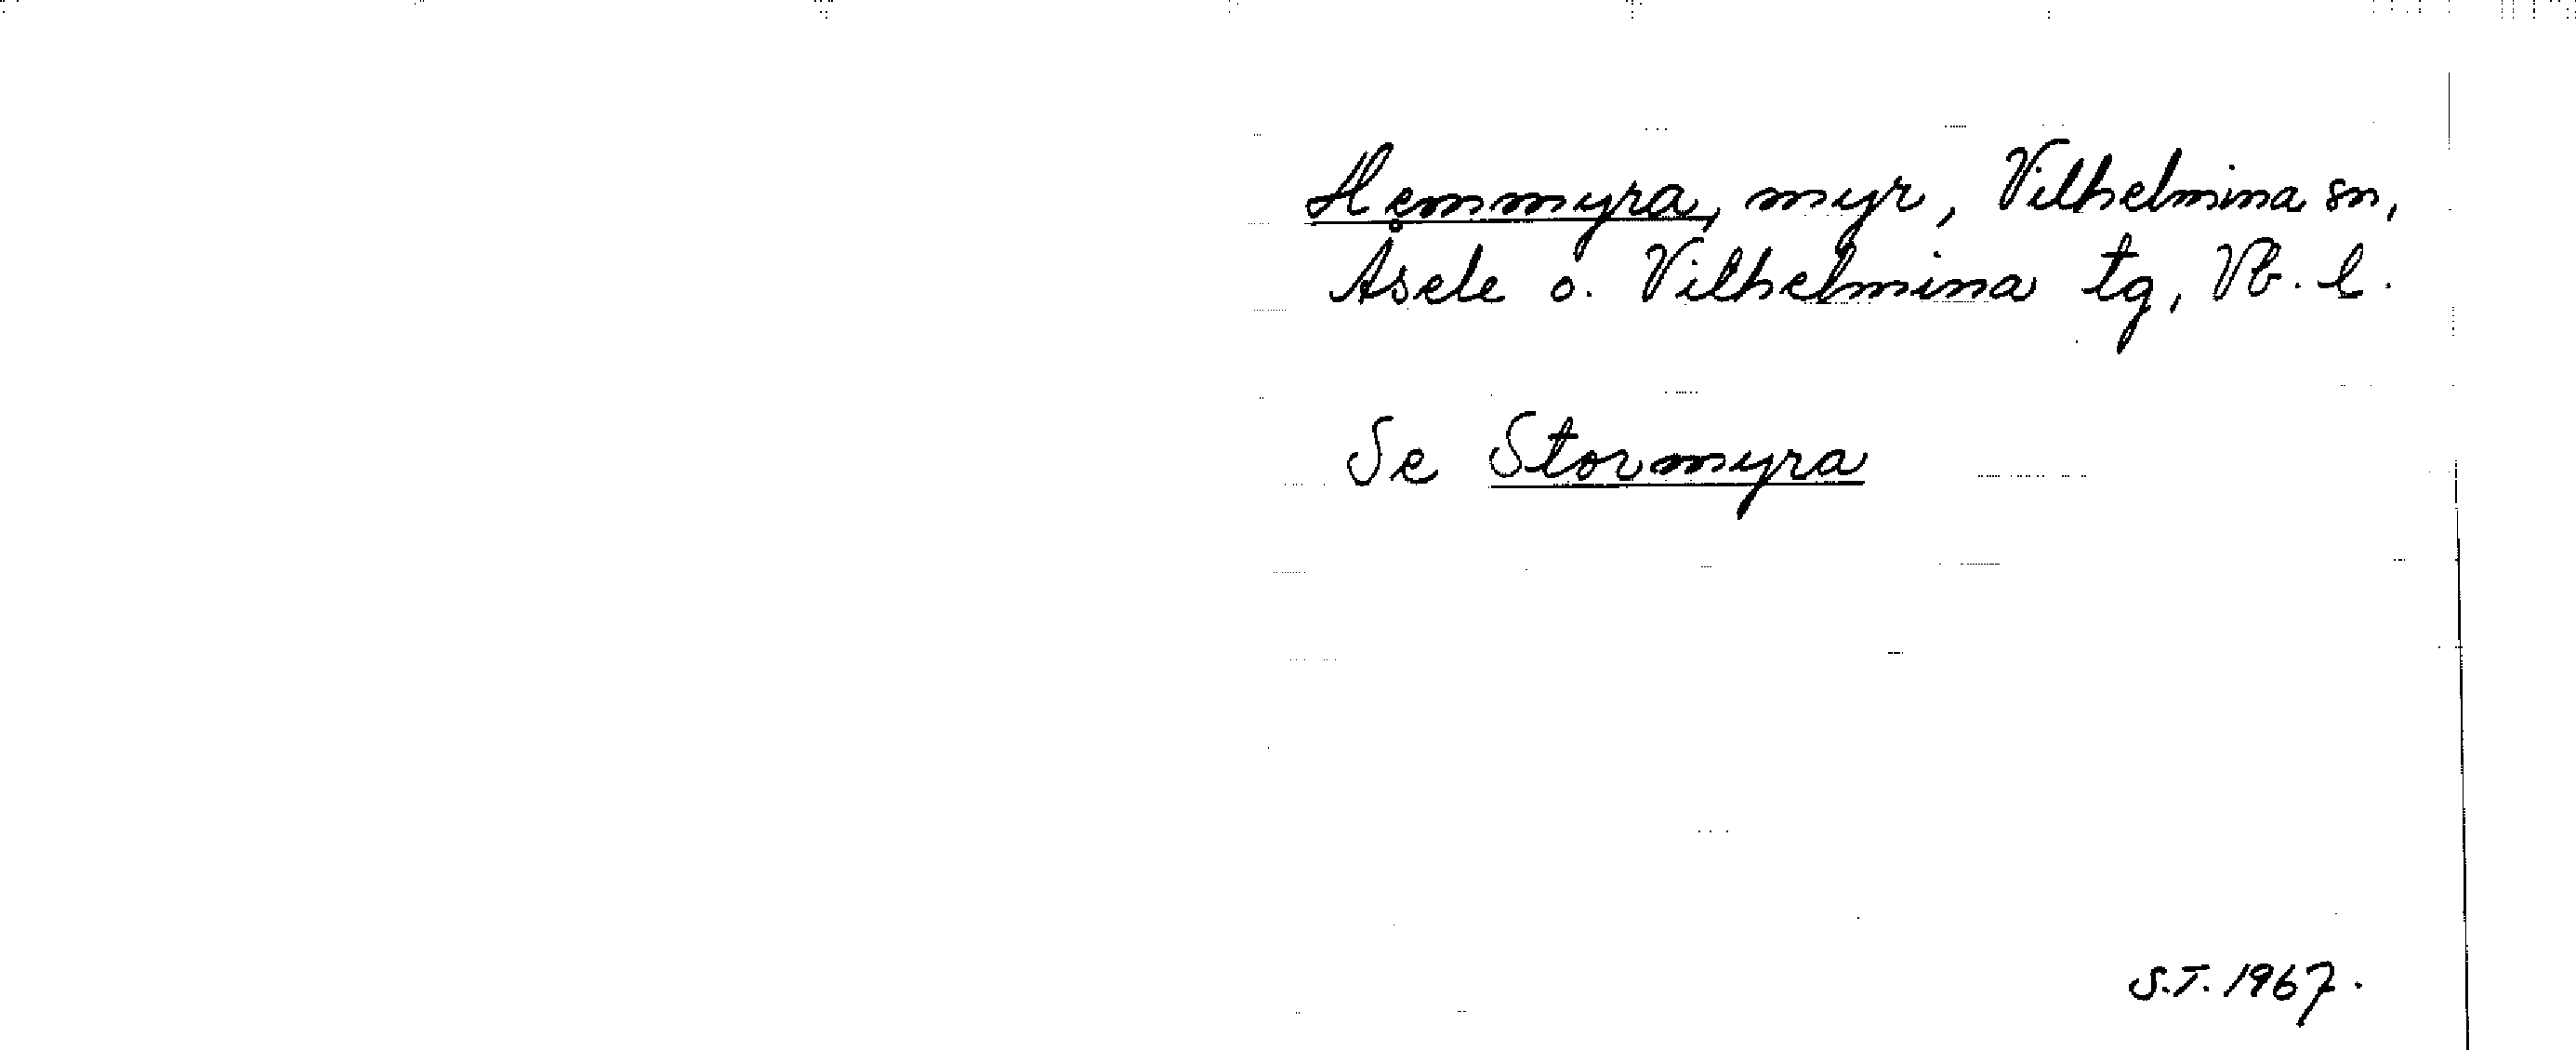 Hemmyra, myr, Vilhelmina sn,
Åsele o. Vilhelmina tg, Vb. l.
Se Stormyra
S.T. 1967.